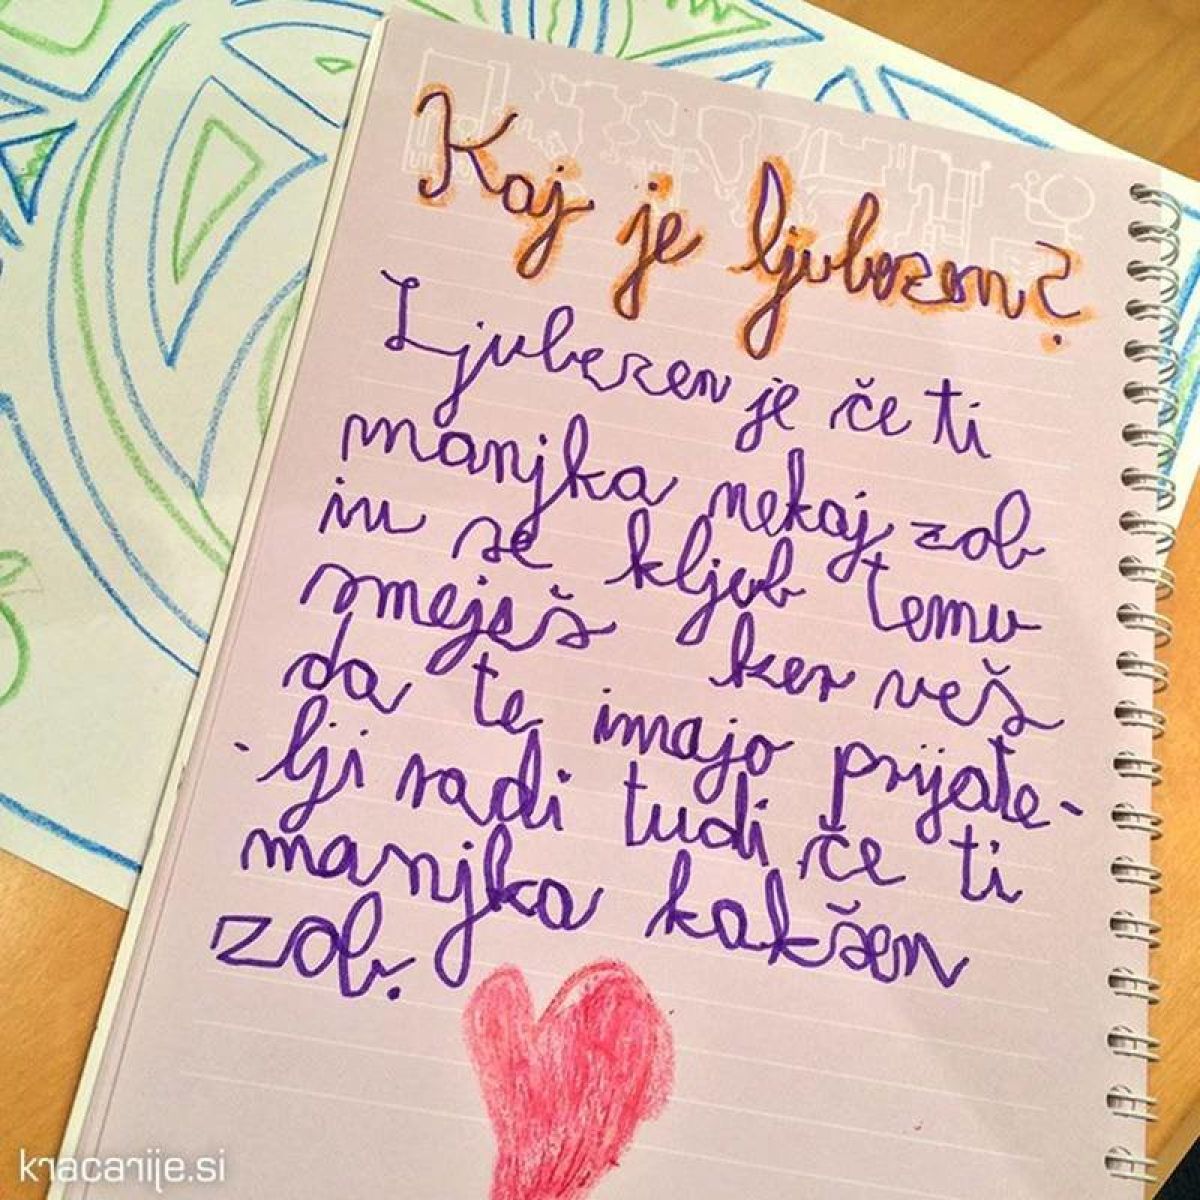 Kaj je ljubezen?
Ljubezen je če ti
manjka nekaj zob
in se kljub temu
smeješ ker veš
da te imajo prijate-
-lji radi tudi če ti
manjka kakšen
zob.
knacanije.si